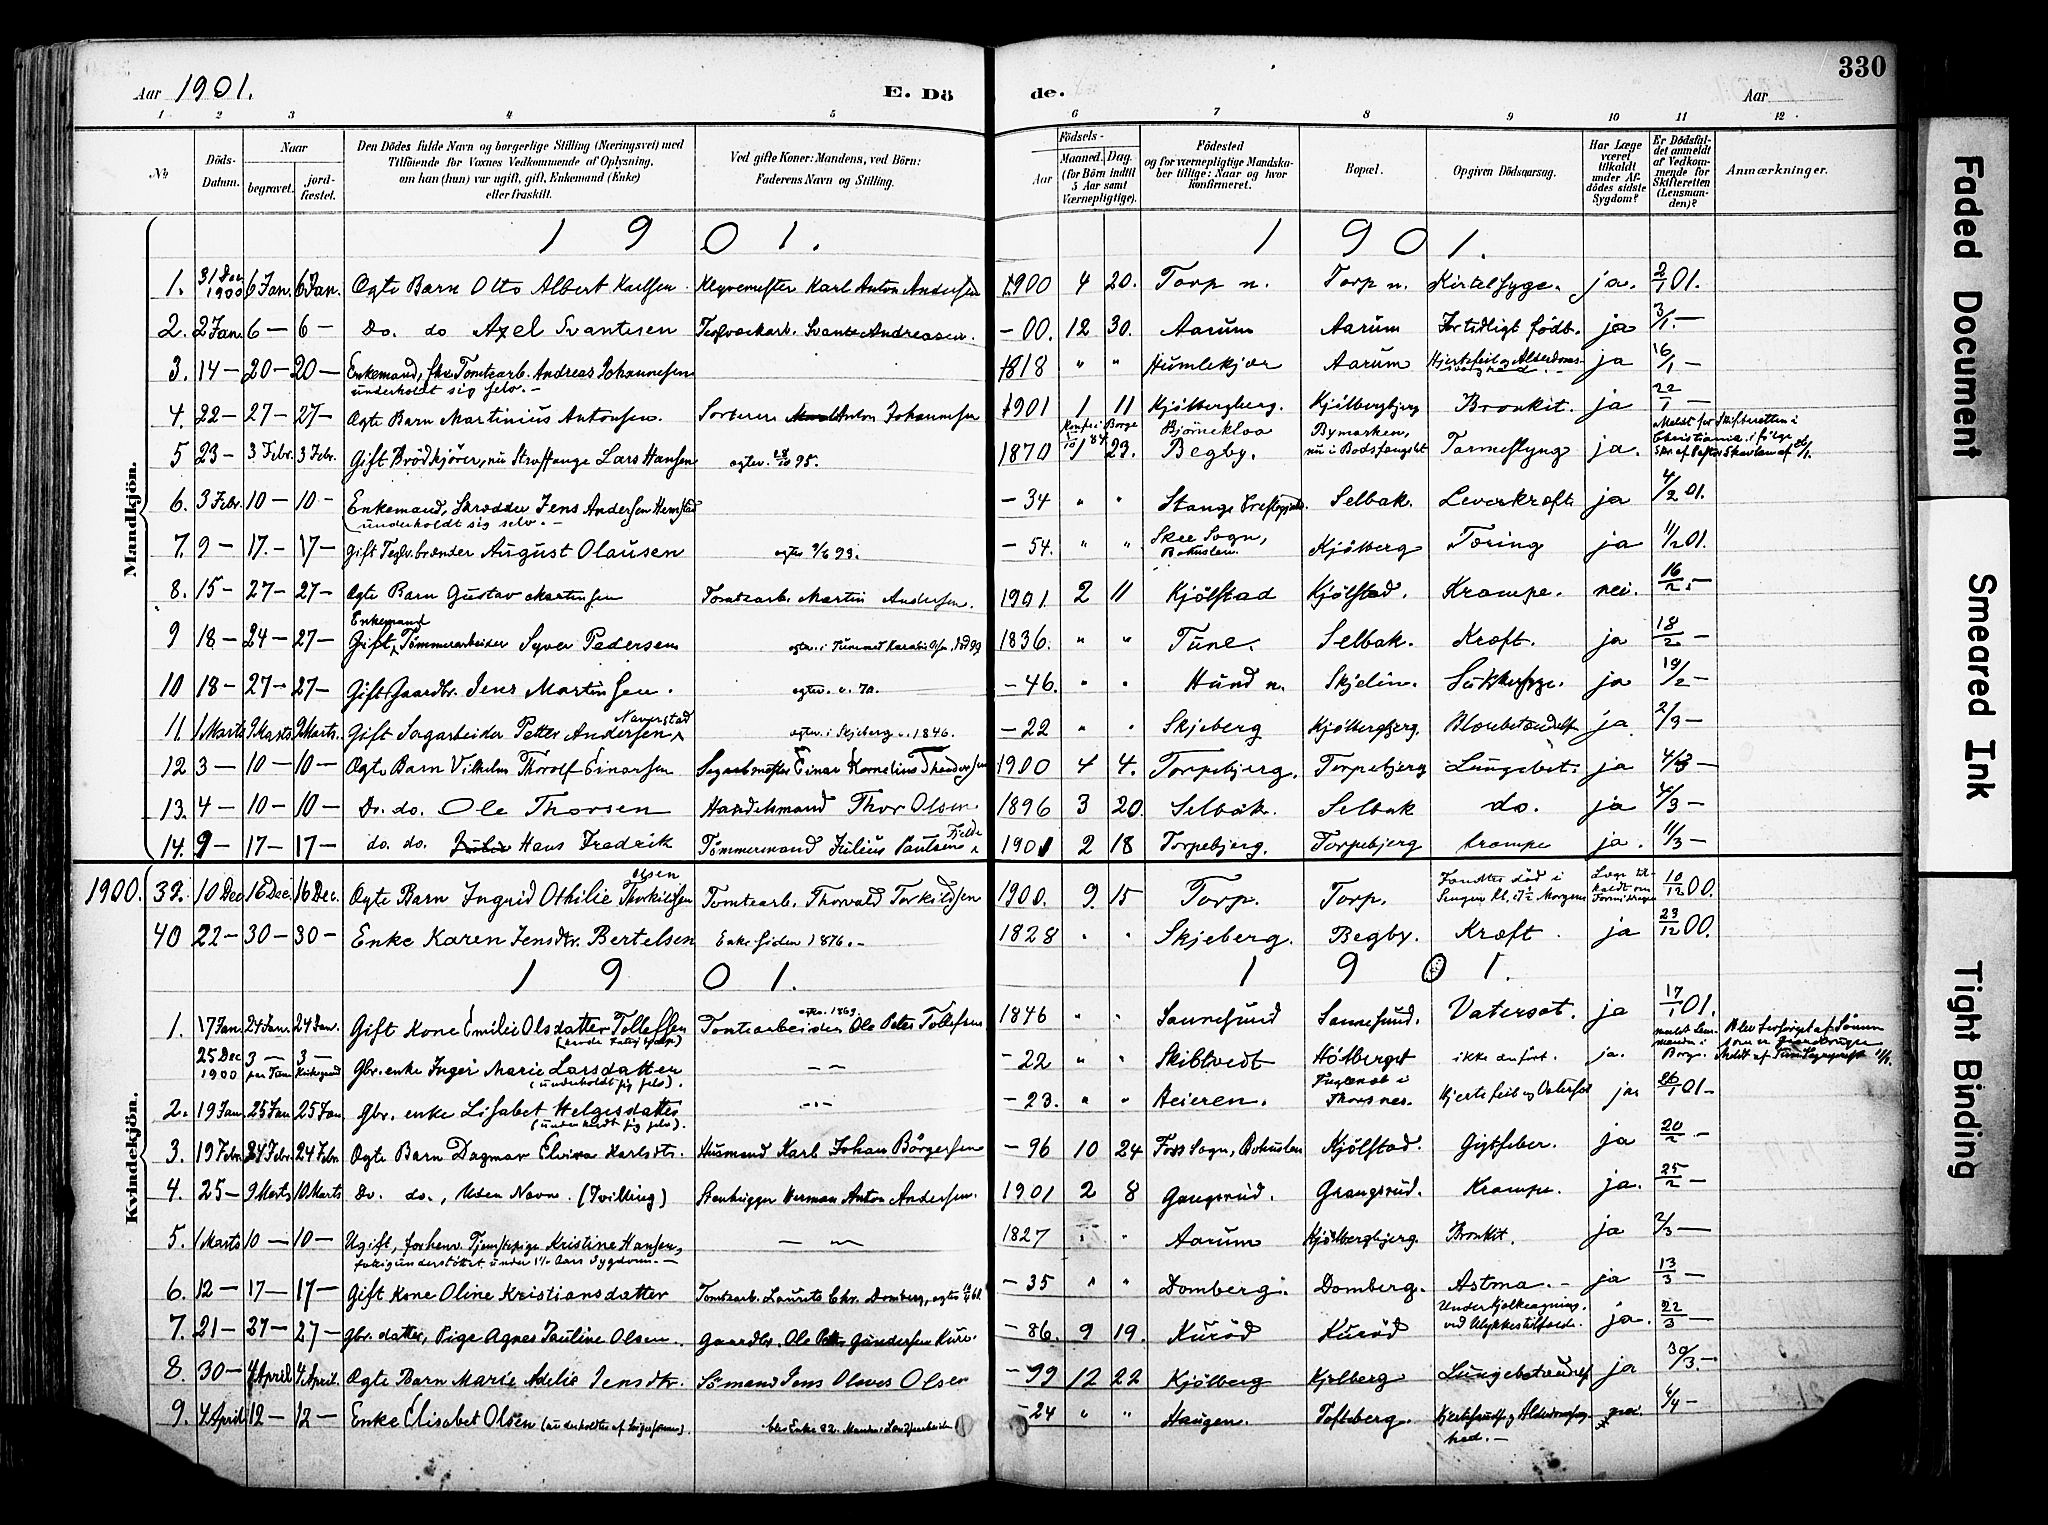 330
Aar 1901.
E. Dö
de.
Aar
1 2 3 4 5 6 7 8 9 10 11 12
№
Döds-Datum.
Naar
begravet.
jordfæstet.
Den Dödes fulde Navn og borgerlige Stilling (Næringsvei) med
Tilföiende for Voxnes Vedkommende af Oplysning,
om han (hun) var ugift, gift, Enkemand (Enke)
eller fraskilt.
Ved gifte Koner: Mandens, ved Börn:
Faderens Navn og Stilling.
Födsels-
Aar
Maaned. Dag.
(for Börn indtil
5 Aar samt
Værnepligtige).
Födested
og for værnepligtige Mandska-
ber tillige: Naar og hvor
konfirmeret.
Bopæl.
Opgiven Dödsaarsag.
Har Læge
været
tilkaldt
under Af-
dödes sidste
Sygdom?
Er Dödsfal-
det anmeldt
af Vedkom-
mende for
Skifteretten
(Lensman-
den)?
Anmærkninger.
Mandkjön.
1901. 1901.
1. 31 Dec 1900 6 Jan. 6 Jan. Ægte Barn Otto Albert Karlsen Karl Anton Andersen 1900 4 20. Torp n. Torp n. Kirtelsyge. ja. 2/1 01.
2. 2 Jan. 6 — 6 — Do. do Axel Svantesen Teglværkarb. Svante Andreasen. — 00. 12 30. Aarum Aarum For tidligt födt. ja 3/1. —
3. 14 — 20 — 20 — Enkemand, Tomtearb. Andreas Johannesen 1818 " " Humlekjær Aarum Hjertefeil og ja 16/1 —
underholdt sig selv. —
4. 22 — 27 — 27 — Ægte Barn Martinius Antonsen. Sorterer Anton Johannesen 1901 1 11 Kjölbergbjerg. Kjölbergbjerg Bronkit. ja 22/1 —
5 23 — 3 Febr. 3 Febr. Gift Brödkjörer, nu Straffange Lars Hansen 95. 1870 23. Björnekloa Begby. Bymarken, nu i Bodsfængslet Tarmeslyng ja. Meldt for Skifteretten i Christiania
6. 3 Febr. 10 — 10 — Enkemand, Skrædder Jens Andersen — 34 " " Stange Selbak. Leverkræft ja 4/2 01.
underholdt sig selv. —
7. 9 — 17. — 17 — Gift Teglv.brænder August Olausen — 54. " " Skee Sogn, Bohuslen. Kjölberg Tæring ja 11/2 01.
8. 15 — 27 — 27 — Ægte Barn Gustav Martinsen Tomtearb. Martin Andersen. 1901. 2 11 Kjölstad Kjölstad. Krampe. nei. 16/2. —
9 18 — 24 — 27 — Enkemand Gift, Tömmerarbeider Syver Pedersen 1836. " " Tune. Selbak. Kræft. ja 18/2 —
10 18 — 27 — 27 — Gift Gaardbr. Jens Martinsen. — 46. " " Hund n. Skjelin. Sukkersyge. ja 19/2 —
11. 1 Marts 9 Marts. 9 Marts. Gift Sagarbeider Petter Andersen Naverstad i Skjeberg 1846. — 22 " " Skjeberg Kjölbergbjerg. Blærebetændelse ja 2/3 —
12 3 — 10 — 10 — Ægte Barn Vilhelm Thorolf Einarsen Einar Kornelius 1900 4 4. Torpebjerg. Torpebjerg Lungebet. ja 4/3 —
13. 4 — 10 — 10 — Do. do. Ole Thorsen Handelsmand Thor Olsen. 1896 3 20 Selbak. Selbak do. ja 4/3 —
14. 9 — 17 — 17 — do. do. Hans Fredrik Tömmermand Julius Paulsen Fjeld 1901 2 18 Torpebjerg. Torpebjerg krampe ja. 11/3 —
Kvindekjön.
1900. 32. 10 Dec 16 Dec. 16 Dec. Ægte Barn Ingrid Othilie Thorkildsen Olsen Tomtearb. Thorvald Torkildsen 1900. 9. 15 Torp. Torp. Fandtes död i Sengen Kl. Morgen 10/12 00.
40 22 — 30 — 30 — Enke Karen Jensdtr. Bertelsen Enke siden 1876. — 1828 " " Skjeberg. Begby. Kræft. ja 23/12 00.
1901. 1901.
1. 17 Jan. 24 Jan. 24 Jan. Gift Kone Emilie Olsdatter Tollefsen Tomtearbeider Ole Peter Tollefsen 1869 1846 " " Sannesund Sannesund. Vatersot. ja 17/1 01.
25 Dec 1900 3 — 3 — Gbr. enke Inger Marie Larsdatter (underholdt sig selv). — 22 " " Skibtvedt ikke anfört. ja. Blev forsörget af Sönnen som er Gaardbruger
2. 19 Jan. 25 Jan 25 Jan Gbr. enke Lisabet Helgesdatter (underholdt sig selv). — 23. " " Aeieren. Fuglevik i Thorsnes. Hjertefeil og Vatersot ja 26/1 01 —
3. 19 Febr. 24 Febr. 24 Febr Ægte Barn Dagmar Elvira Karlsdtr. Husmand Karl Johan Börgersen — 96 10 24 Foss Sogn, Bohuslen Kjölstad. Gigtfeber. ja 20/2 —
4. 25 — 9 Marts 10 Marts Do. do., Uden Navn. (Tvilling) Stenhugger Herman Anton Andersen. 1901 2 8 Gangsrud. Grangsrud. Krampe. ja. 25/2 —
5. 1 Marts 10 — 10 — Ugift, forhenv. Tjenstepige Kristine Hansen, — — 1827 " " Aarum Kjölbergbjerg. Bronkit. ja 2/3 —
fattigunderstöttet under 1½ Aars Sygdom. —
6. 12 — 17 — 17 — Gift Kone Oline Kristiansdatter Tomtearb. Laurits Chr. Domberg, — 35 " " Domberg. Domberg. Astma. — ja 13/3 —
7. 21 — 27 — 27 — Gbr. datter, Pige Agnes Pauline Olsen. Gaardbr. Ole Gundersen — 86. 9 19. Kuröd Kuröd ved Ulykkestilfælde. ja. 22/3 —
8. 30 — 4 April 4 April. Ægte Barn Marie Adelie Jensdtr. Sömand Jens Olaves Olsen — 99 12 22 Kjölberg Kjölberg Lungebetændelse ja 30/3. —
9. 4 April 12 — 12 — Enke Elisabet Olsen blev Enke 82. — 24 " " Haugen. Tofteberg. nei. 6/4 —
Faded Document
Smeared Ink
Tight Binding